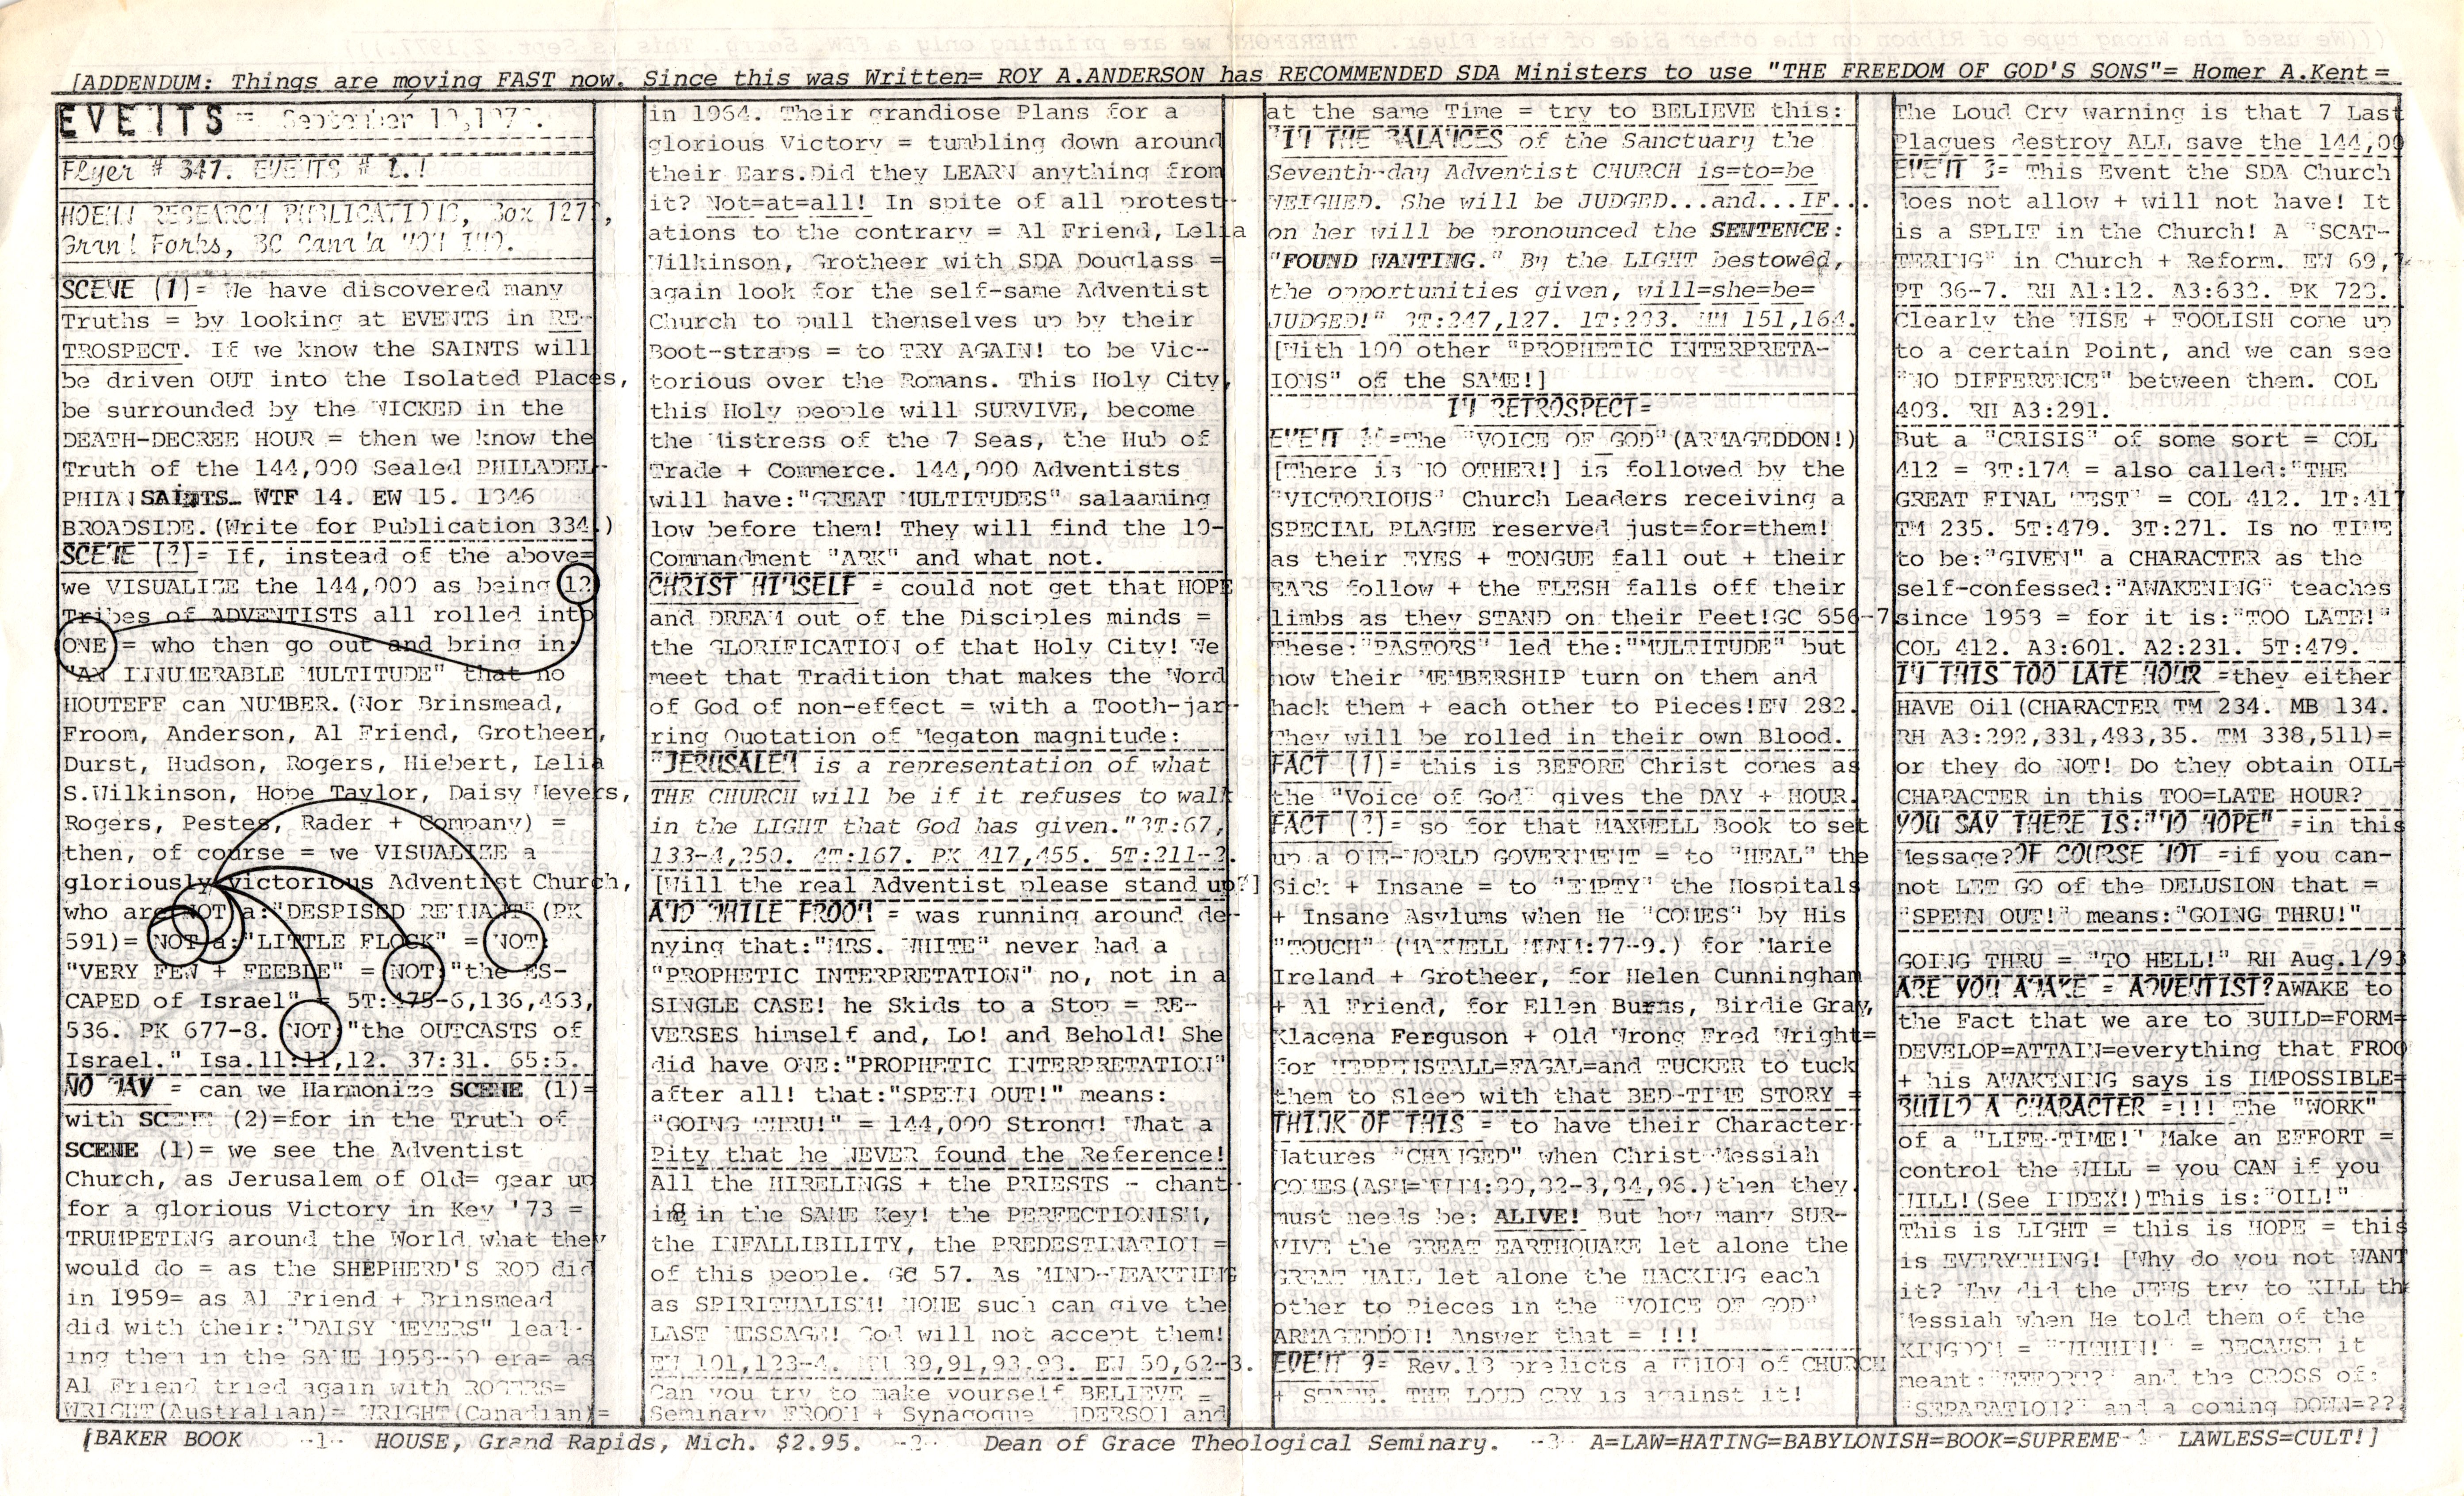 [ADDENDUM: Things are moving FAST now. Since this was Written= ROY A.ANDERSON has RECOMMENDED SDA Ministers to use "THE FREEDOM OF GOD'S SONS"= Homer A.Kent=
EVENTS = September
Flyer # 347. EVENTS # 1.!
HOEHN RESEARCH PUBLICATIONS, Box
Grand Forks, BC Canada
SCENE (1)= We have discovered many
Truths = by looking at EVENTS in RE-
TROSPECT. If we know the SAINTS will
be driven OUT into the Isolated Places,
be surrounded by the WICKED in the
DEATH-DECREE HOUR = then we know the
Truth of the 144,000 Sealed PHILADEL-
PHIAN SAINTS. WTF 14. EW 15. 1846
BROADSIDE.(Write for Publication 334.)
SCENE (2)= If, instead of the above=
we VISUALIZE the 144,000 as being 12
Tribes of ADVENTISTS all rolled into
ONE = who then go out and bring in:
"AN INNUMERABLE MULTITUDE" that no
HOUTEFF can NUMBER.(Nor Brinsmead,
Froom, Anderson, Al Friend, Grotheer,
Durst, Hudson, Rogers, Hiebert, Lelia
S.Wilkinson, Hope Taylor, Daisy Meyers,
Rogers, Pestes, Rader + Company) =
then, of course = we VISUALIZE a
gloriously victorious Adventist Church,
who are NOT a:"DESPISED REMNANT"(PK
591)= NOT a:"LITTLE FLOCK" = NOT:
"VERY FEW + FEEBLE" = NOT:"the ES-
CAPED of Israel" = 5T:475-6,136,463,
536. PK 677-8. NOT:"the OUTCASTS of
Israel." Isa.11:11,12. 37:31. 65:5.
NO WAY = can we Harmonize SCENE (1)=
with SCENE (2)=for in the Truth of
SCENE (1)= we see the Adventist
Church, as Jerusalem of Old= gear up
for a glorious Victory in Key '73 =
TRUMPETING around the World what they
would do = as the SHEPHERD'S ROD did
in 1959= as Al Friend + Brinsmead
did with their:"DAISY MEYERS" lead-
ing them in the SAME 1958-60 era= as
Al Friend tried again with ROGERS=
WRIGHT(Australian)= WRIGHT(Canadian)=
in 1964. Their grandiose Plans for a
glorious Victory = tumbling down around
their Ears.Did they LEARN anything from
it? Not=at=all! In spite of all protest-
ations to the contrary = Al Friend, Lelia
Wilkinson, Grotheer with SDA Douglass =
again look for the self-same Adventist
Church to pull themselves up by their
Boot-straps = to TRY AGAIN! to be Vic-
torious over the Romans. This Holy City,
this Holy people will SURVIVE, become
the Mistress of the 7 Seas, the Hub of
Trade + Commerce. 144,000 Adventists
will have:"GREAT MULTITUDES" salaaming
low before them! They will find the 10-
Commandment "ARK" and what not.
CHRIST HIMSELF = could not get that HOPE
and DREAM out of the Disciples minds =
the GLORIFICATION of that Holy City! We
meet that Tradition that makes the Word
of God of non-effect = with a Tooth-jar-
ring Quotation of Megaton magnitude:
"JERUSALEM is a representation of what
THE CHURCH will be if it refuses to walk
in the LIGHT that God has given."8T:67,
133-4,250. 4T:167. PK 417,455. 5T:211-2.
[Will the real Adventist please stand up?]
AND WHILE FROOM = was running around de-
nying that:"MRS. WHITE" never had a
"PROPHETIC INTERPRETATION" no, not in a
SINGLE CASE! he Skids to a Stop = RE-
VERSES himself and, Lo! and Behold! She
did have ONE:"PROPHETIC INTERPRETATION"
after all! that:"SPEWN OUT!" means:
"GOING THRU!" = 144,000 Strong! What a
Pity that he NEVER found the Reference!
All the HIRELINGS + the PRIESTS - chant-
ing in the SAME Key! the PERFECTIONISM,
the INFALLIBILITY, the PREDESTINATION =
of this people. GC 57. As MIND-WEAKTHING
as SPIRITUALISM! NONE such can give the
LAST MESSAGE! God will not accept them!
EW 101,123-4. 39,91,93. EW 50,62-3.
Can you try to make yourself BELIEVE =
Seminary FROOM + Synagogue ANDERSON and
at the same Time = try to BELIEVE this:
"IN THE BALANCES of the Sanctuary the
Seventh-day Adventist CHURCH is=to=be
WEIGHED. She will be JUDGED...and...IF...
on her will be pronounced the SENTENCE:
"FOUND WANTING." By the LIGHT bestowed,
the opportunities given, will=she=be=
JUDGED!" 8T:247,127. 1T: MM 151,164.
[With 100 other "PROPHETIC INTERPRETA-
IONS" of the SAME!]
IN RETROSPECT=
EVENT =The "VOICE OF GOD"(ARMAGEDDON!)
[There is NO OTHER!] is followed by the
"VICTORIOUS" Church Leaders receiving a
SPECIAL PLAGUE reserved just=for=them!
as their EYES + TONGUE fall out + their
EARS follow + the FLESH falls off their
limbs as they STAND on their Feet!GC 656-7
These:"PASTORS" led the:"MULTITUDE" but
now their MEMBERSHIP turn on them and
hack them + each other to Pieces!EW 282.
They will be rolled in their own Blood.
FACT (1)= this is BEFORE Christ comes as
the "Voice of God" gives the DAY + HOUR.
FACT (2)= so for that MAXWELL Book to set
up a ONE-WORLD GOVERNMENT = to "HEAL" the
Sick + Insane = to "EMPTY" the Hospitals
+ Insane Asylums when He "COMES" by His
"TOUCH" (MAXWELL :77-9.) for Marie
Ireland + Grotheer, for Helen Cunningham
+ Al Friend, for Ellen Burns, Birdie Gray,
Klacena Ferguson + Old Wrong Fred Wright=
for VEPPE ISTALL=FAGAL=and TUCKER to tuck
them to Sleep with that BED-TIME STORY =
THINK OF THIS = to have their Character-
Natures "CHANGED" when Christ-Messiah
COMES( :80,82-3,84,96.)then they
must needs be: ALIVE! But how many SUR-
VIVE the GREAT EARTHQUAKE let alone the
GREAT HAIL let alone the HACKING each
other to Pieces in the "VOICE OF GOD"
ARMAGEDDON! Answer that = !!!
EVENT 9= Rev.13 predicts a UNION of CHURCH
+ STATE. THE LOUD CRY is against it!
The Loud Cry warning is that 7 Last
Plagues destroy ALL save the 144,00
EVENT 3= This Event the SDA Church
does not allow + will not have! It
is a SPLIT in the Church! A "SCAT-
TERING" in Church + Reform. EW 69,7
PT 36-7. RH A1:12. A3:632. PK 723.
Clearly the WISE + FOOLISH come up
to a certain Point, and we can see
"NO DIFFERENCE" between them. COL
408. RH A3:291.
But a "CRISIS" of some sort = COL
412 = 8T:174 = also called:"THE
GREAT FINAL TEST" = COL 412. 1T:417
TM 235. 5T:479. 3T:271. Is no TIME
to be:"GIVEN" a CHARACTER as the
self-confessed:"AWAKENING" teaches
since 1958 = for it is:"TOO LATE!"
COL 412. A3:601. A2:231. 5T:479.
IN THIS TOO LATE HOUR =they either
HAVE Oil(CHARACTER TM 234. MB 134.
RH A3:292,331,483,35. TM 338,511)=
or they do NOT! Do they obtain OIL=
CHARACTER in this TOO=LATE HOUR?
YOU SAY THERE IS:"NO HOPE" =in this
Message?OF COURSE NOT =if you can-
not LET GO of the DELUSION that =
"SPEWN OUT!" means:"GOING THRU!"
GOING THRU = "TO HELL!" RH Aug.1/93
ARE YOU AWAKE = ADVENTIST?AWAKE to
the Fact that we are to BUILD=FORM=
DEVELOP=ATTAIN=everything that FROO
+ his AWAKENING says is IMPOSSIBLE=
BUILD A CHARACTER =!!! The "WORK"
of a "LIFE-TIME!" Make an EFFORT =
control the WILL = you CAN if you
WILL!(See INDEX!)This is:"OIL!"
This is LIGHT = this is HOPE = this
is EVERYTHING! [Why do you not WANT
it? Why did the JEWS try to KILL th
Messiah when He told them of the
KINGDOM = "WITHIN!" = BECAUSE it
meant:"EFFORT?" and the CROSS of:
"SEPARATION?" and a coming DOWN=??
[BAKER BOOK --1-- HOUSE, Grand Rapids, Mich. $2.95. --2-- Dean of Grace Theological Seminary. --3-- A=LAW=HATING=BABYLONISH=BOOK=SUPREME LAWLESS=CULT!]